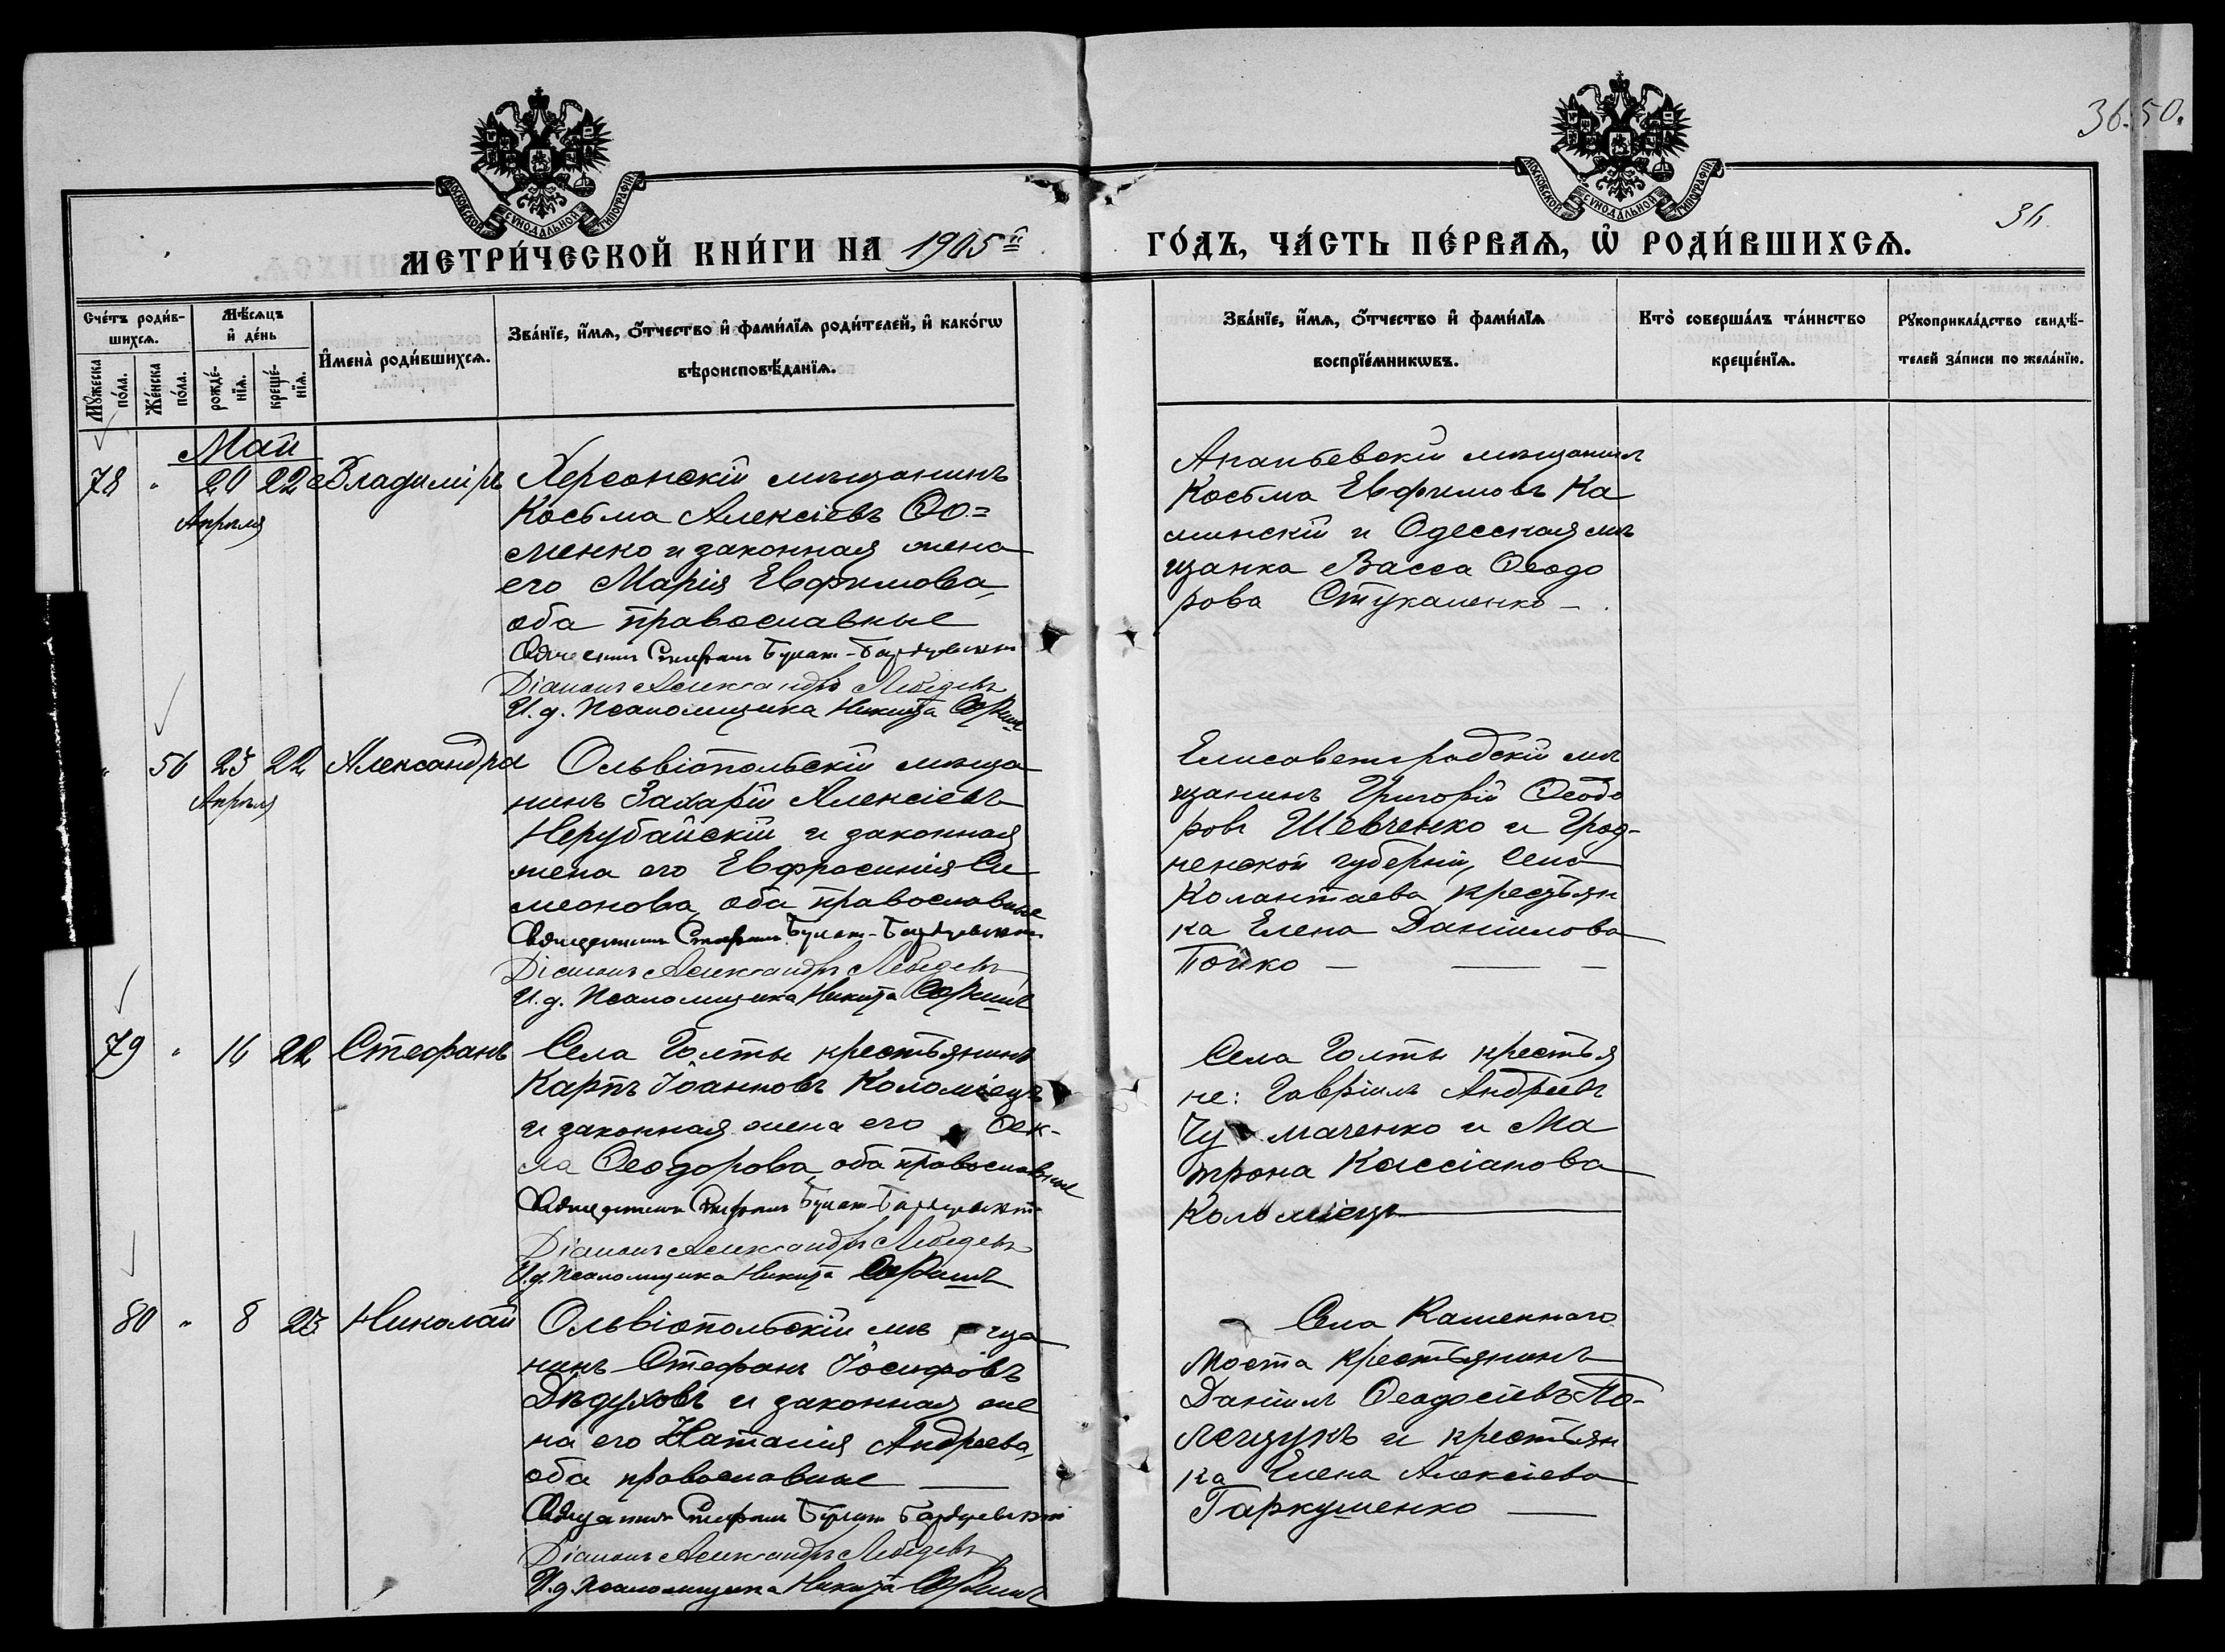 36. 50.
МОСКОВСКОЙ СѴНОДАЛЬНОЙ ТИПОГРАФІИ
МОСКОВСКОЙ СѴНОДАЛЬНОЙ ТИПОГРАФІИ
36.
МЕТРИ́ЧЕСКОЙ КНИ́ГИ НА 1905й ГО́ДЪ, ЧА́СТЬ ПЕ́РВАѦ, Ѡ҆ РОДИ́ВШИХСѦ.
Сче́тъ роди́вшихсѧ.
Мꙋ́жеска по́ла.
Же́нска по́ла.
Мѣ́сѧцъ и҆ де́нь
рожде́нїѧ.
креще́нїѧ.
И҆мена̀ роди́вшихсѧ.
Зва́нїе, и҆́мѧ, ѻ҆́тчество и҆ фами́лїѧ роди́телей, и҆ како́гѡ
вѣроисповѣ́данїѧ.
Зва́нїе, и҆́мѧ, ѻ҆́тчество и҆ фами́лїѧ
воспрїе́мникѡвъ.
Кто̀ соверша́лъ та́инство
креще́нїѧ.
Рꙋкоприкла́дство свидѣ́-
телей за́писи по жела́нїю.
Май
78 " 20 22 Владиміръ
Апрѣля
Херсонскій мѣщанинъ
Косьма Алексіевъ Ѳо=
менко и законная жена
его Марія Евфимова,
оба православные
Священникъ Стефанъ Булат-
Діаконъ Александръ Лебедевъ
И. д. Псаломщика Никита
Ананьевскій мѣщанинъ
Косьма Евфимовъ Ка
минскій и Одесская мѣ
щанка Васса Ѳеодо
рова Стукаленко —
" 56 23 22 Александра
Апрѣля
Ольвіопольскій мѣща
нинъ Захарій Алексіевъ
Нерубайскій и законная
жена его Евфросинія Си
меонова, оба православные
Священникъ Стефанъ Булат-
Діаконъ Александръ Лебедевъ
И. д. Псаломщика Никита
Елисаветградскій мѣ
щанинъ Григорій Ѳеодо
ровъ Шевченко и Грод-
ненской губерніи, села
Колантаева крестьян
ка Елена Даніилова
Бойко —
79 " 16 22 Стефанъ
Села Голты крестьянинъ
Карпъ Іоанновъ Коломіецъ
и законная жена его Ѳек-
ла Ѳеодорова, оба православные
Священникъ Стефанъ Булат-
Діаконъ Александръ Лебедевъ
И. д. Псаломщика Никита
Села Голты крестья
не: Гавріилъ Андреевъ
Чумаченко и Ма
трона Кассіанова
Коломіецъ
80 " 8 23 Николай
Ольвіопольскій мѣща
нинъ Стефанъ Іосифовъ
Дѣдуховъ и законная же
на его Наталія Андреева,
оба православные
Священникъ Стефанъ Булат-
Діаконъ Александръ Лебедевъ
И. д. Псаломщика Никита
Села Каменнаго
Моста крестьянинъ
Даніилъ Ѳеодосіевъ По-
лещукъ и крестьян
ка Елена Алексіева
Гаркушенко